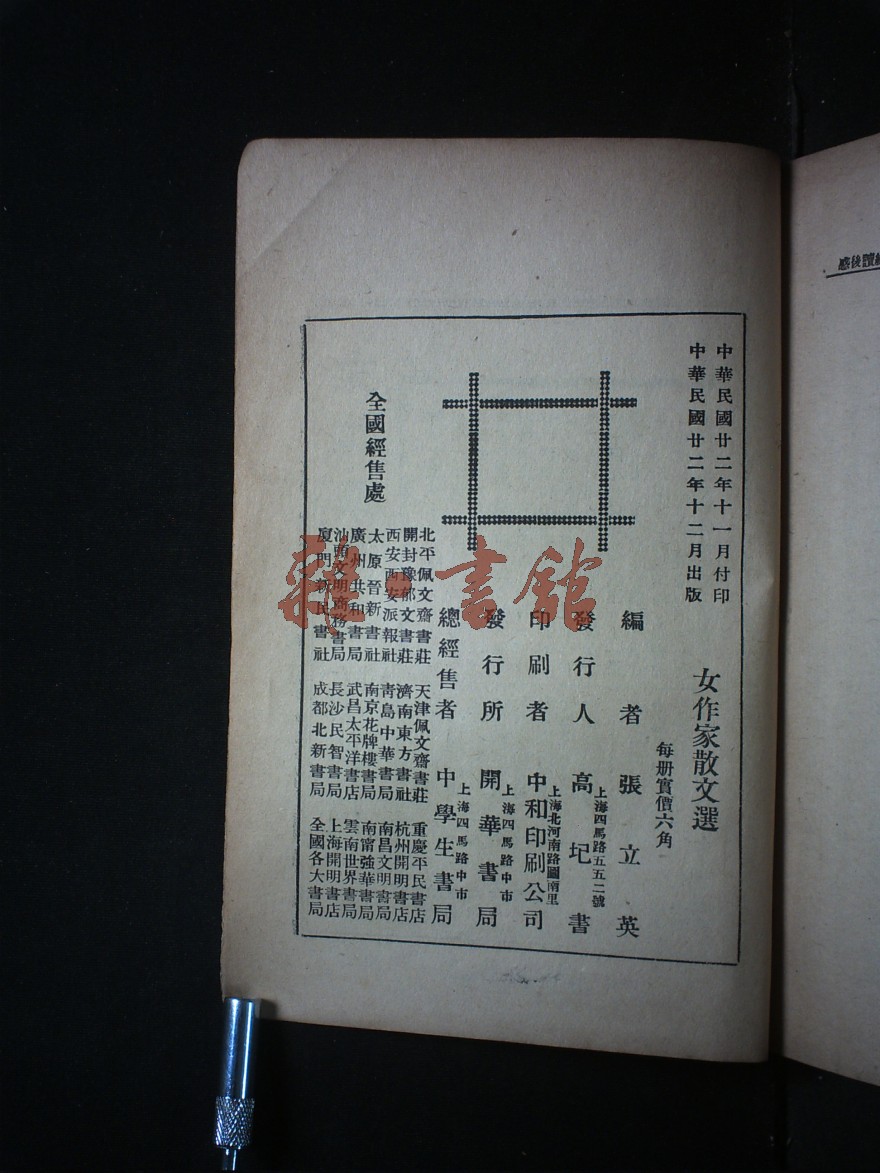 中華民國廿二年十一月付印
中華民國廿二年十二月出版
女作家散文選
每册實價六角
編者張立英
發行人高圮書
上海四馬路五五二號
印刷者中和印刷公司
上海北河南路圖南里
發行所開華書局
上海四馬路中市
總經售者中學生書局
上海四馬路中市
全國經售處
北平佩文齋書莊 天津佩文齋書莊 重慶平民書店
開封豫郁文書莊 濟南東方書社 杭州開明書店
西安西安派報社 青島中華書局 南昌文明書局
太原晉新書社 南京花牌樓書局 南甯強華書局
廣州共和書局 武昌太平洋書店 雲南世界書局
汕頭文明商務書局 長沙民智書局 上海開明書店
廈門新民書社 成都北新書局 全國各大書局
雜·書館
讀後感